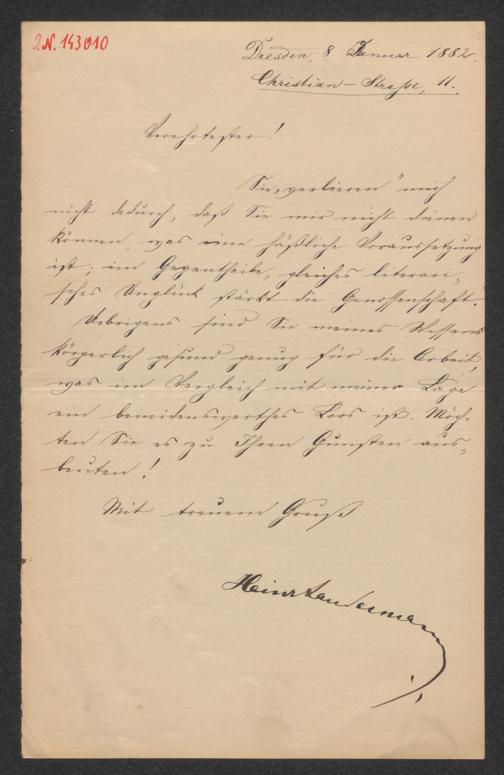 IN. 143010
Dresden, 8 Januar 1882.
Christian-Straße, 11.
Verehrtester!
Sie „verlieren" mich
nicht dadurch, daß Sie mir nicht dienen
können, was eine häßliche Voraussetzung
ist; im Gegentheile, gleiches literari-
sches Unglück stärkt die Genossenschaft.
Uebrigens sind Sie meines Wissens
körperlich gesund genug für die Arbeit,
was im Vergleich mit meiner Lage
ein beneidenswerthes Loos ist. Möch-
ten Sie es zu Ihren Gunsten aus-
beuten!
Mit treuem Gruß
Heinr Landesmann